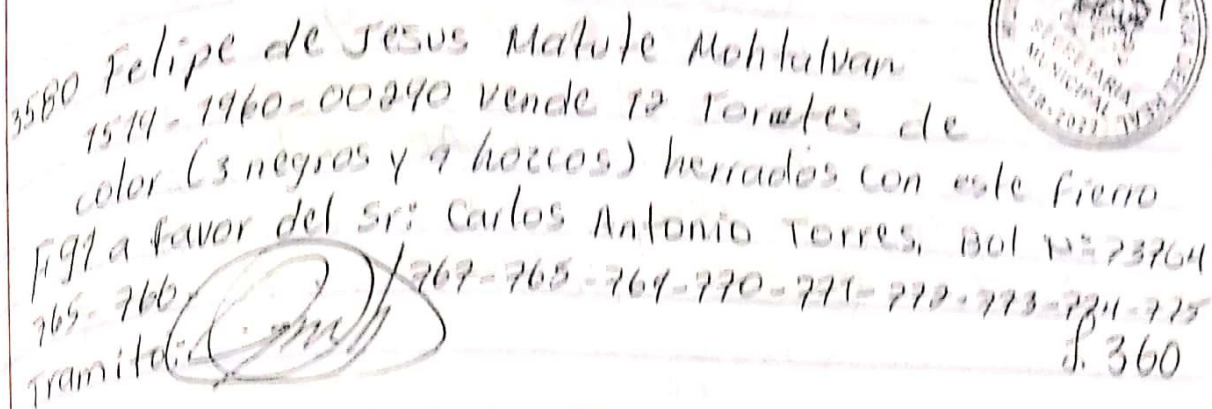 3580 Felipe de Jesus Matute Montalvan
1519-1960-00290 vende 12 Toretes de
color (3 negros y 9 hoscos) herrados con este fierro
a favor del Sr: Carlos Antonio Torres, Bol Nº 73764
765-766, 767-768-769-770-771-772-773-774-775
Tramito:
J. 360
SECRETARIA
MUNICIPAL